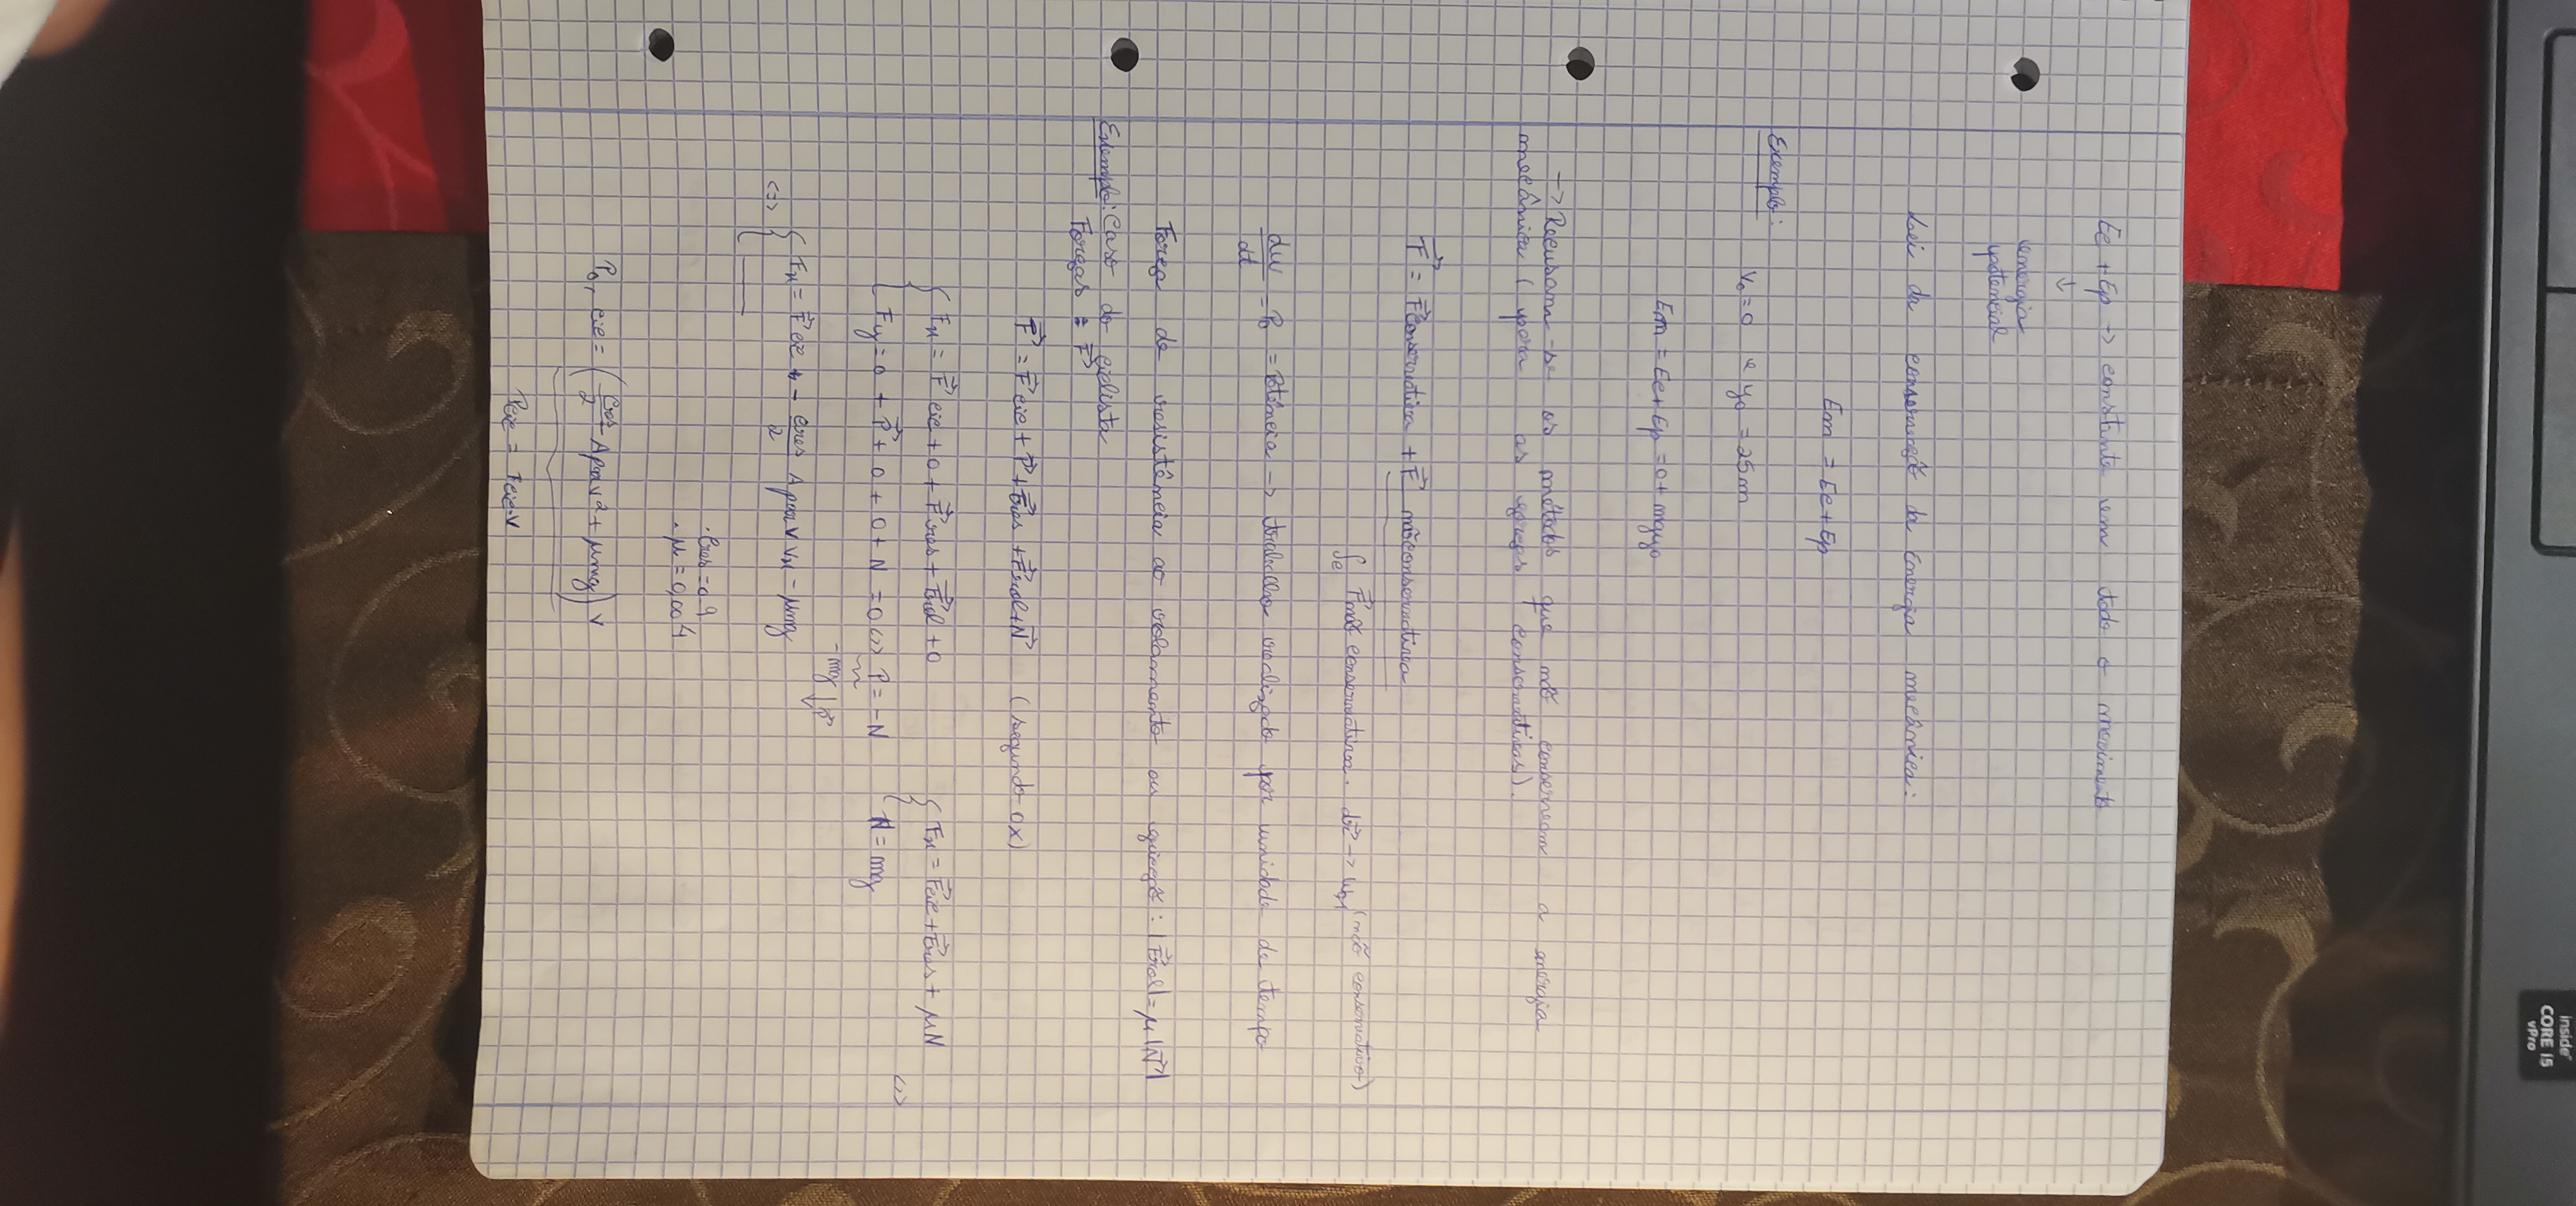 Ec + Ep -> constante em todo o movimento
↓
energia
potencial
Lei da conservação da Energia mecânica:
Em = Ec + Ep
Exemplo:
V₀ = 0 e y₀ = 25 m
Em = Ec + Ep = 0 + mgy₀
-> Recusam-se os métodos que não conservam a energia
mecânica ( para as forças conservativas).
F⃗ = F⃗ conservativa + F⃗ não conservativa
∫c F⃗ não conservativa . dr⃗ -> (não conservativo)
dw/dt = P₀ = Potência -> trabalho realizado por unidade de tempo
Força de resistência ao rolamento ou fricção: |F⃗rol| = μ|N⃗|
Exemplo: Caso do ciclista
Forças = F⃗
F⃗ = F⃗cic + P⃗ + F⃗res + F⃗rol + N⃗ (segundo Ox)
{ Fx = F⃗cic + 0 + F⃗res + F⃗rol + 0
{ Fy = 0 + P⃗ + 0 + 0 + N = 0 <=> P = -N
{ Fx = F⃗cic + F⃗res + μN
{ N = mg
<=>
-mg ↓ P⃗
<=> { Fx = F⃗cic - Cres/2 A ρar v vx - μmg
{ ——
· Cres = 0,9
· μ = 0,004
P₀, cic = (Cres/2 Aρar v² + μmg) v
Pcic = Fcic.v
inside™
CORE i5
vPro